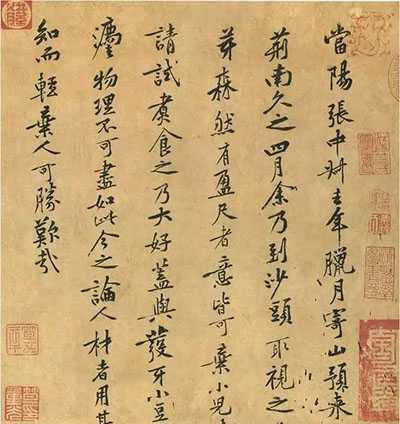 當陽張中叔去年臘月寄山預来
荊南久之四月余乃到沙頭取視之
芽森然有盈尺者意皆可棄小兒
請試煮食之乃大好蓋與發牙小豆
物理不可盡如此今之論人材者用其
知而輕棄人可勝歎哉